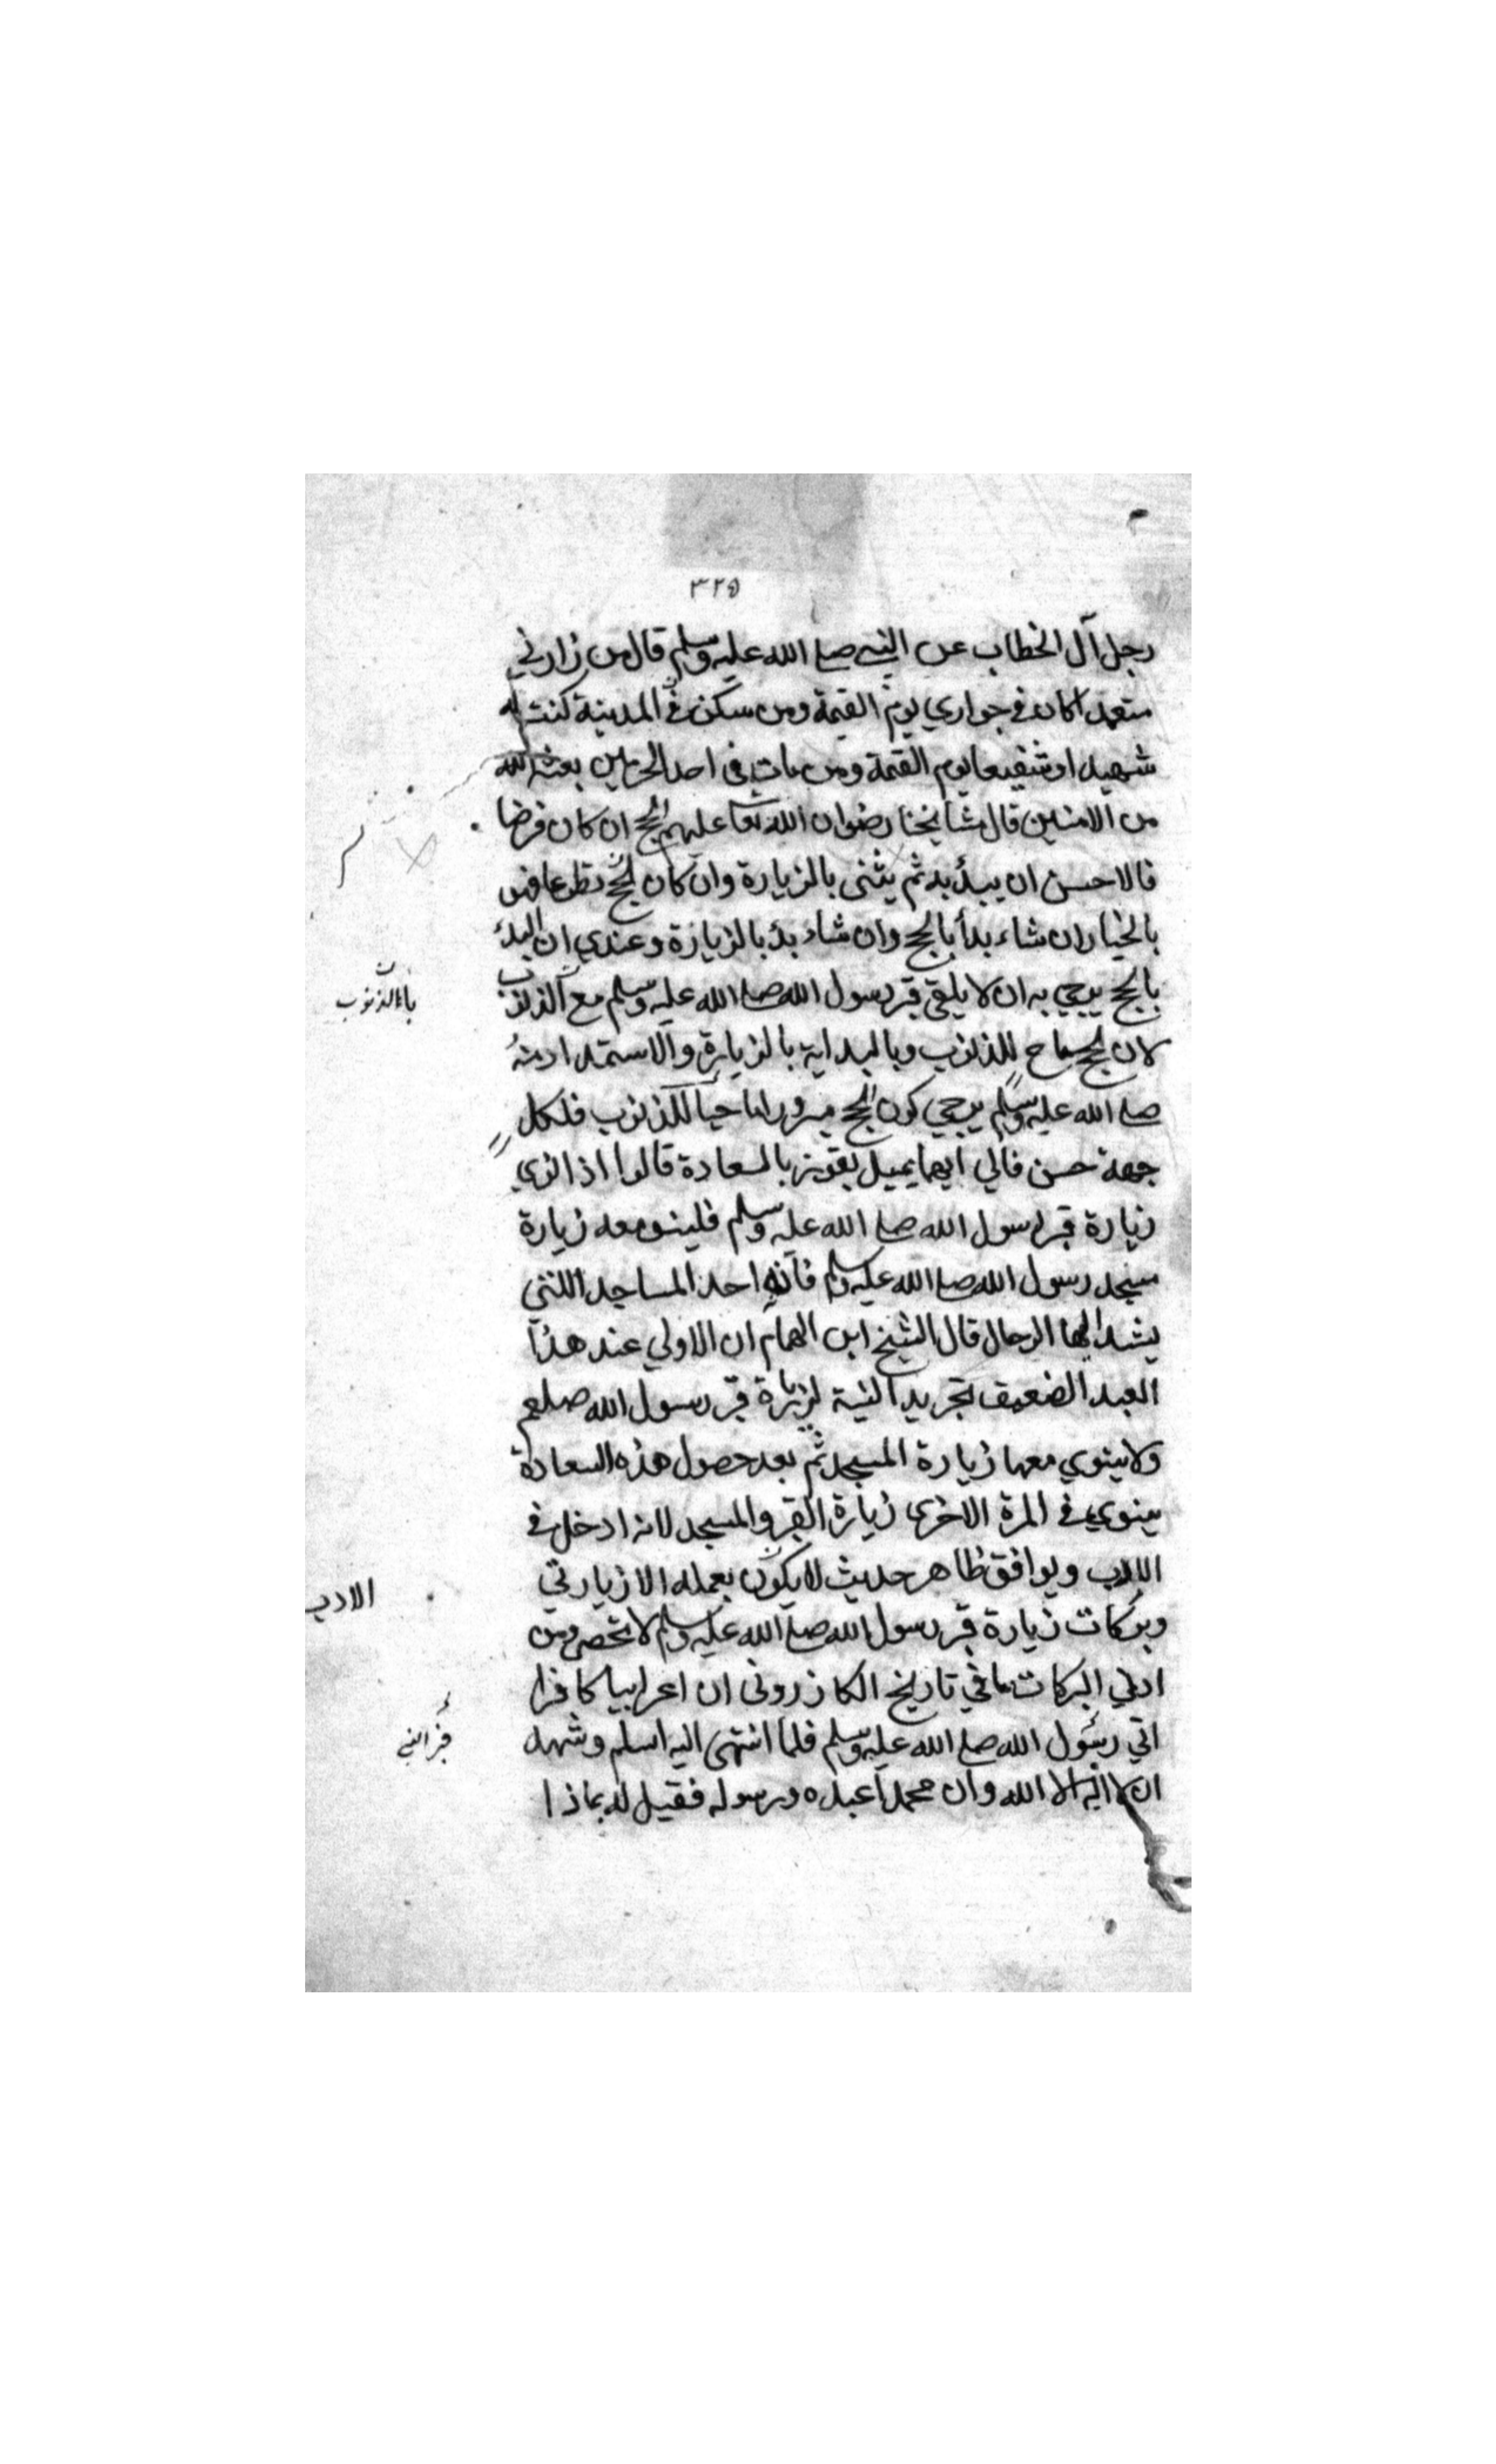 ٣٢٥
رجل آل الخطاب عن النبي صلي الله عليه وسلم قال من زارني
متعمدا كان في جواري يوم القيمة ومن سكن في المدينة كنت له
شهيدا وشفيعا يوم القيمة ومن مات في احد الحرمين بعثه الله
من الامنين قال مشايخنا رضوان الله تعا عليهم الحج ان كان فرضا
فالاحسن ان يبدأ به ثم يثنى بالزيارة وان كان الحج تطوعا فهو
بالخيار ان شاء بدأ بالحج وان شاء بدأ بالزيارة وعندي ان البدء
بالحج يرجي به ان لا يلقي قبر رسول الله صلي الله عليه وسلم مع الذنوب
باء الذنوب
لان الحج ماح للذنوب وبالبداية بالزيارة والاستمداد منه
صلي الله عليه وسلم يرجي كون الحج مبرورا ماحيا للذنوب فلكل
جهة حسن فالي ايهما يميل يفوز بالسعادة قالوا اذا نوي
زيارة قبر رسول الله صلي الله عليه وسلم فلينو معه زيارة
مسجد رسول الله صلي الله عليه وسلم فانه احد المساجد اللتي
يشد اليها الرحال قال الشيخ ابن الهمام ان الاولي عند هذا
العبد الضعيف تجريد النية لزيارة قبر رسول الله صلعم
ولا ينوي معها زيارة المسجد ثم بعد حصول هذه السعادة
ينوي في المرة الاخرى زيارة القبر والمسجد لانه ادخل في
الادب ويوافق ظاهر حديث لا يكون بعمله الا زيارتي
الادب
وبركات زيارة قبر رسول الله صلي الله عليه وسلم لا تحصى ومن
ادني البركات ما في تاريخ الكازروني ان اعرابيا كافرا
اتي رسول الله صلي الله عليه وسلم فلما انتهى اليه اسلم وشهد
قبر النبي
ان لا اله الا الله وان محمدا عبده ورسوله فقيل له بماذا